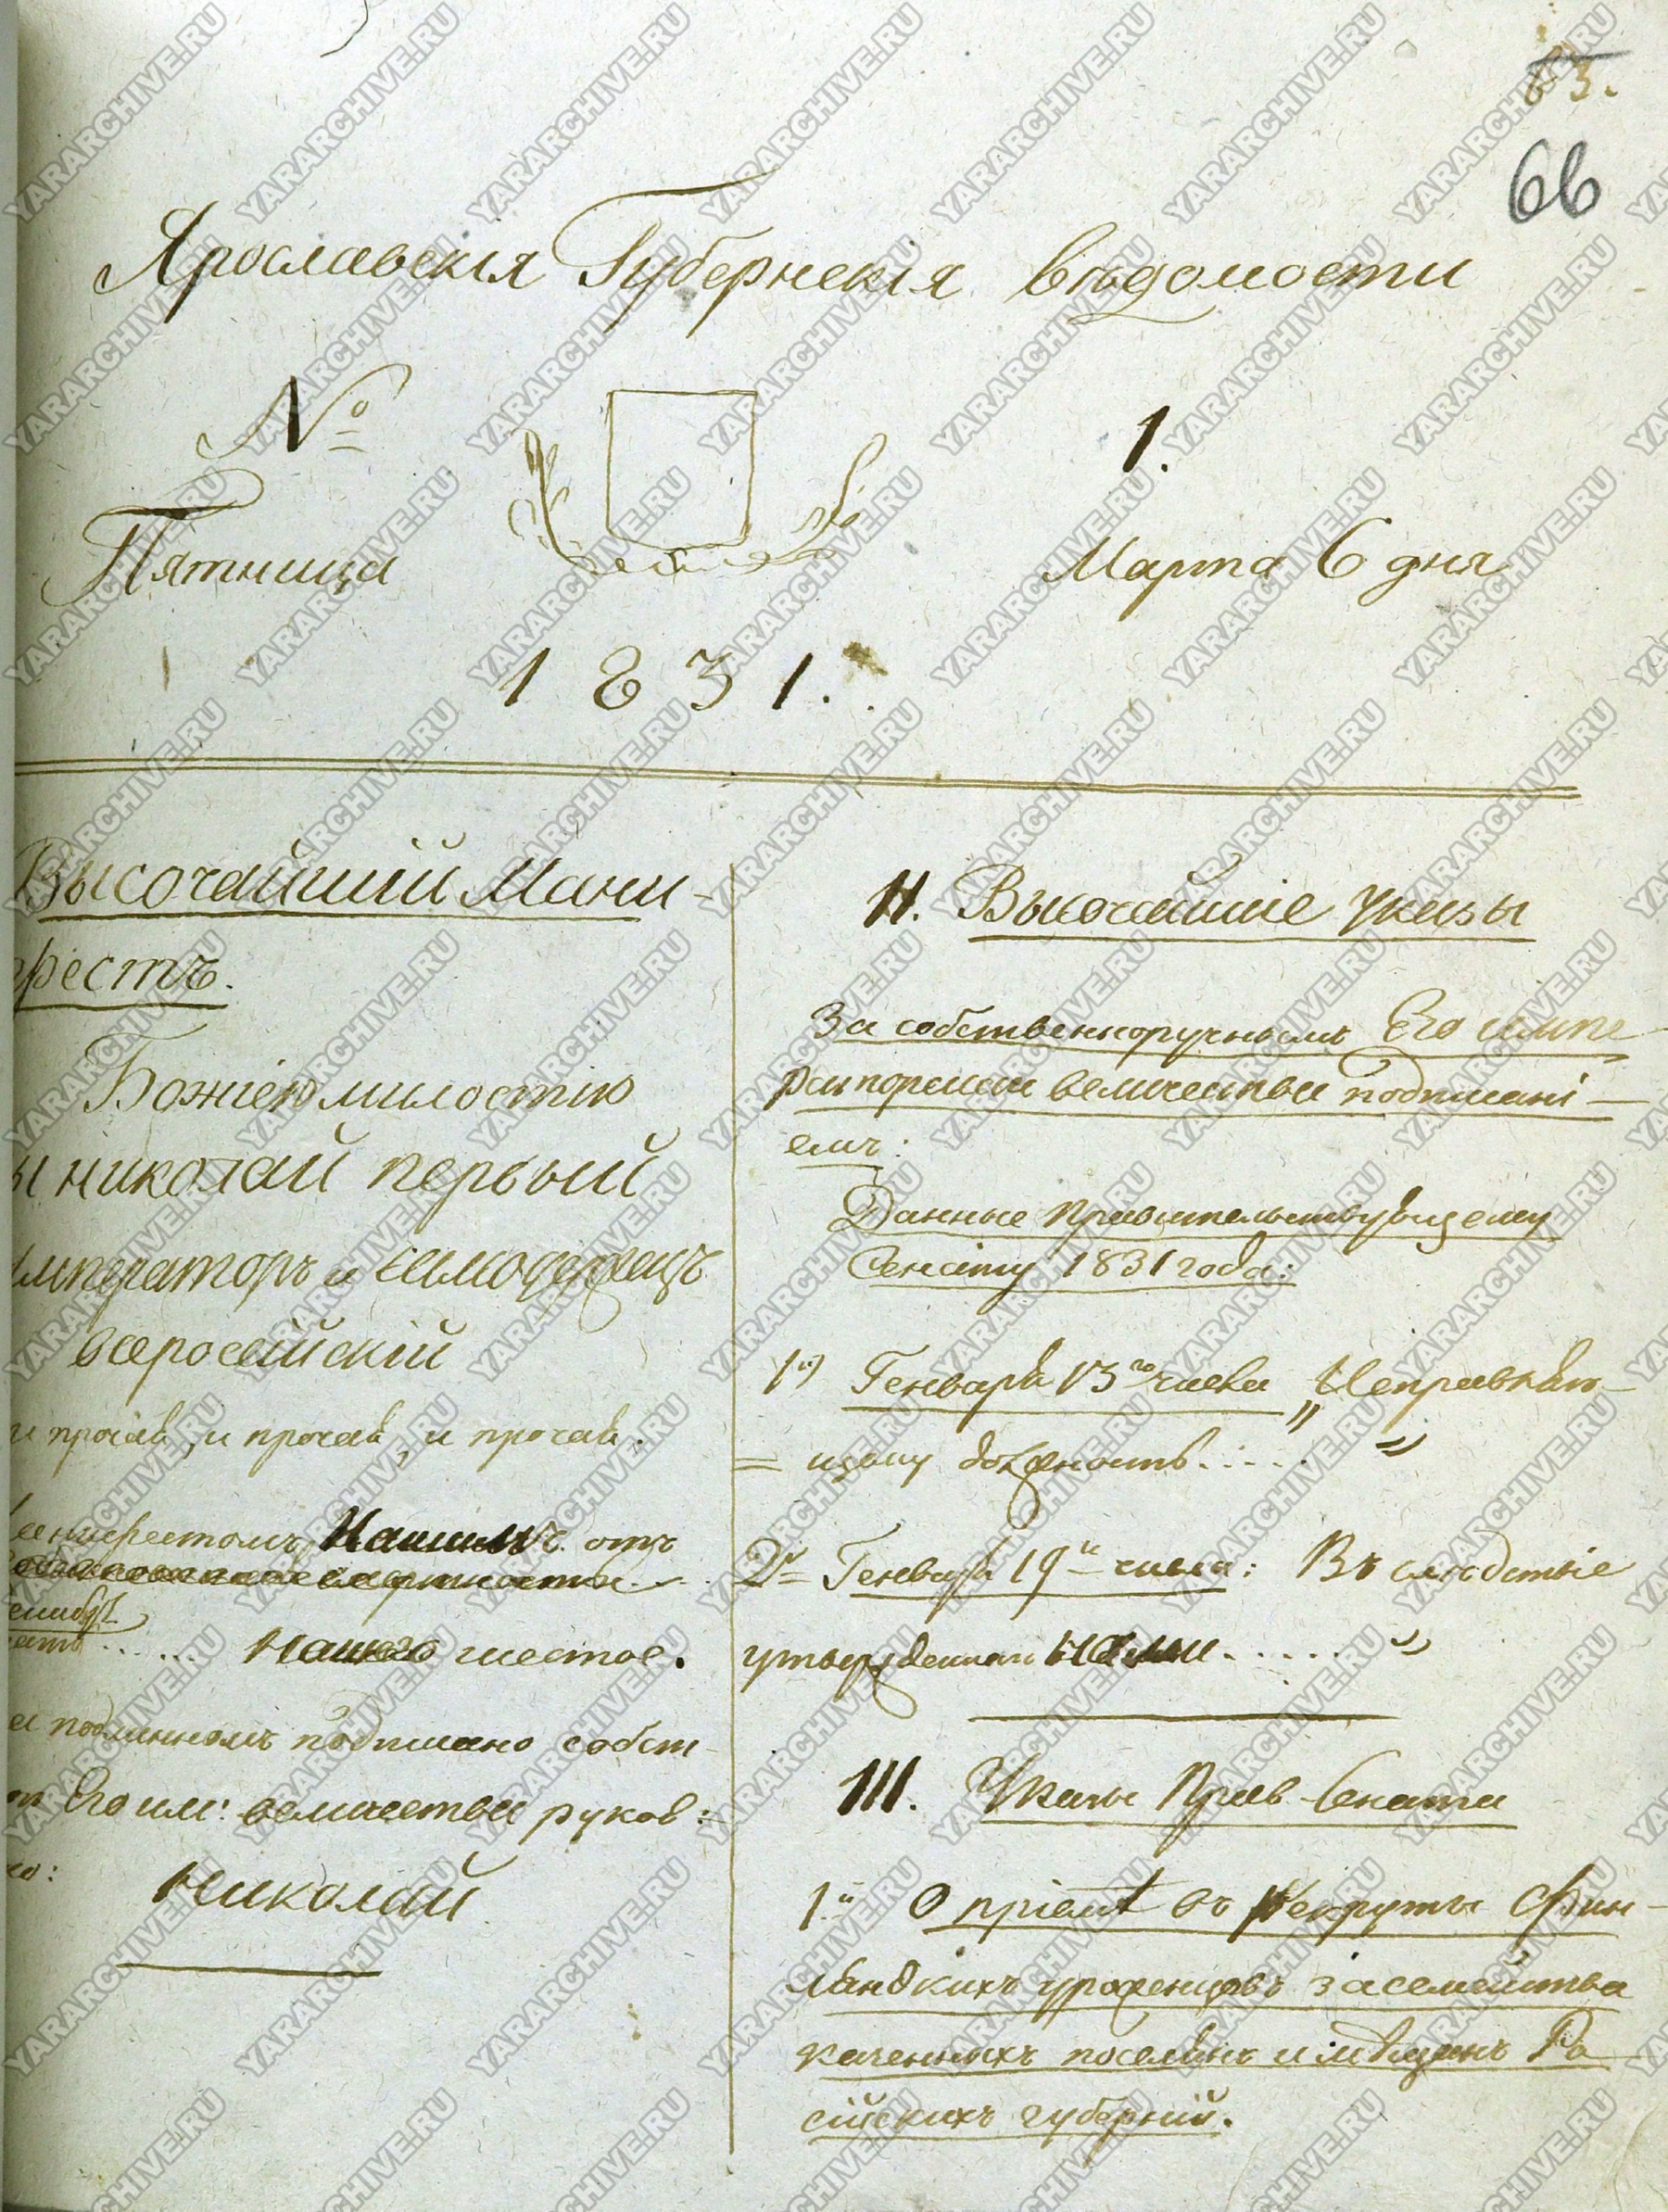 63.
66
Ярославскія Губернскія вѣдомости
№ 1.
Пятница Марта 6 дня
1831.
Высочайшій Мани-
фестъ.
Божіею милостію
ы николай первый
мператоръ и самодержецъ
всеросейскій
и прочая, и прочая, и прочая.
Нашимъ отъ
Нашего шестое.
подлинномъ подписано собст-
Его им: величества руков:
но:
Николай
II. Высочайшіе указы
За собственноручнымъ Его импе-
раторскаго величества подписані-
емъ:
Данные Правительствующему
Сенату 1831 года:
1й) Генваря 13го числа „Исправляю-
= щему должность..... "
2й Генваря 19го числа: Въ слѣдствіе
утвержденнаго Нами..... "
III. Указы Прав Сената
1й О пріемѣ въ рекруты Фин-
ляндкихъ уроженцовъ за семейства
казенныхъ поселянъ и мѣщанъ Ро
сійскихъ губерній.
YARARCHIVE.RU